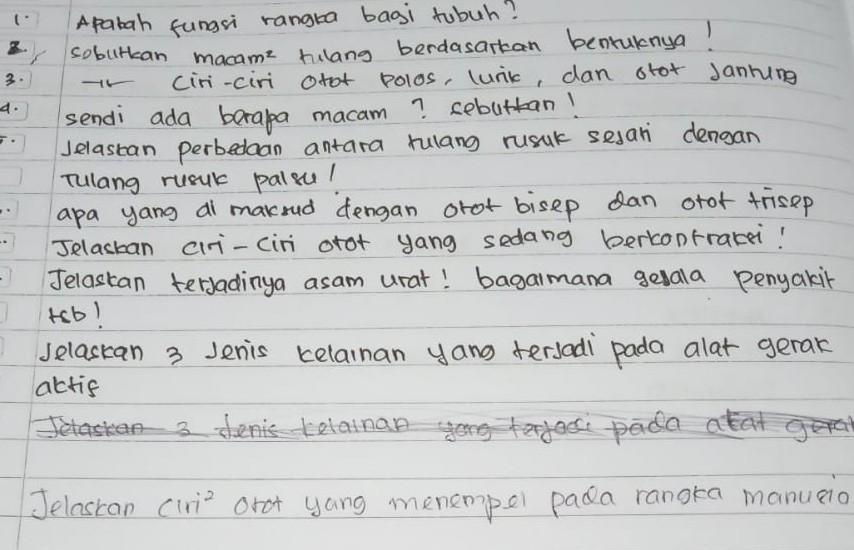 1. Apakah fungsi rangka bagi tubuh?
2. sebutkan macam² tulang berdasarkan bentuknya!
3. —"— Ciri-ciri otot polos, lurik, dan otot Jantung
4. sendi ada berapa macam? sebutkan!
5. Jelaskan perbedaan antara tulang rusuk sejati dengan
Tulang rusuk palsu!
apa yang di maksud dengan otot bisep dan otot trisep
Jelaskan ciri-ciri otot yang sedang berkontraksi!
Jelaskan terjadinya asam urat! bagaimana gejala penyakit
tsb!
Jelaskan 3 Jenis kelainan yang terjadi pada alat gerak
aktif
Jelaskan 3 Jenis kelainan yang terjadi pada alat gerak
Jelaskan ciri² otot yang menempel pada rangka manusia